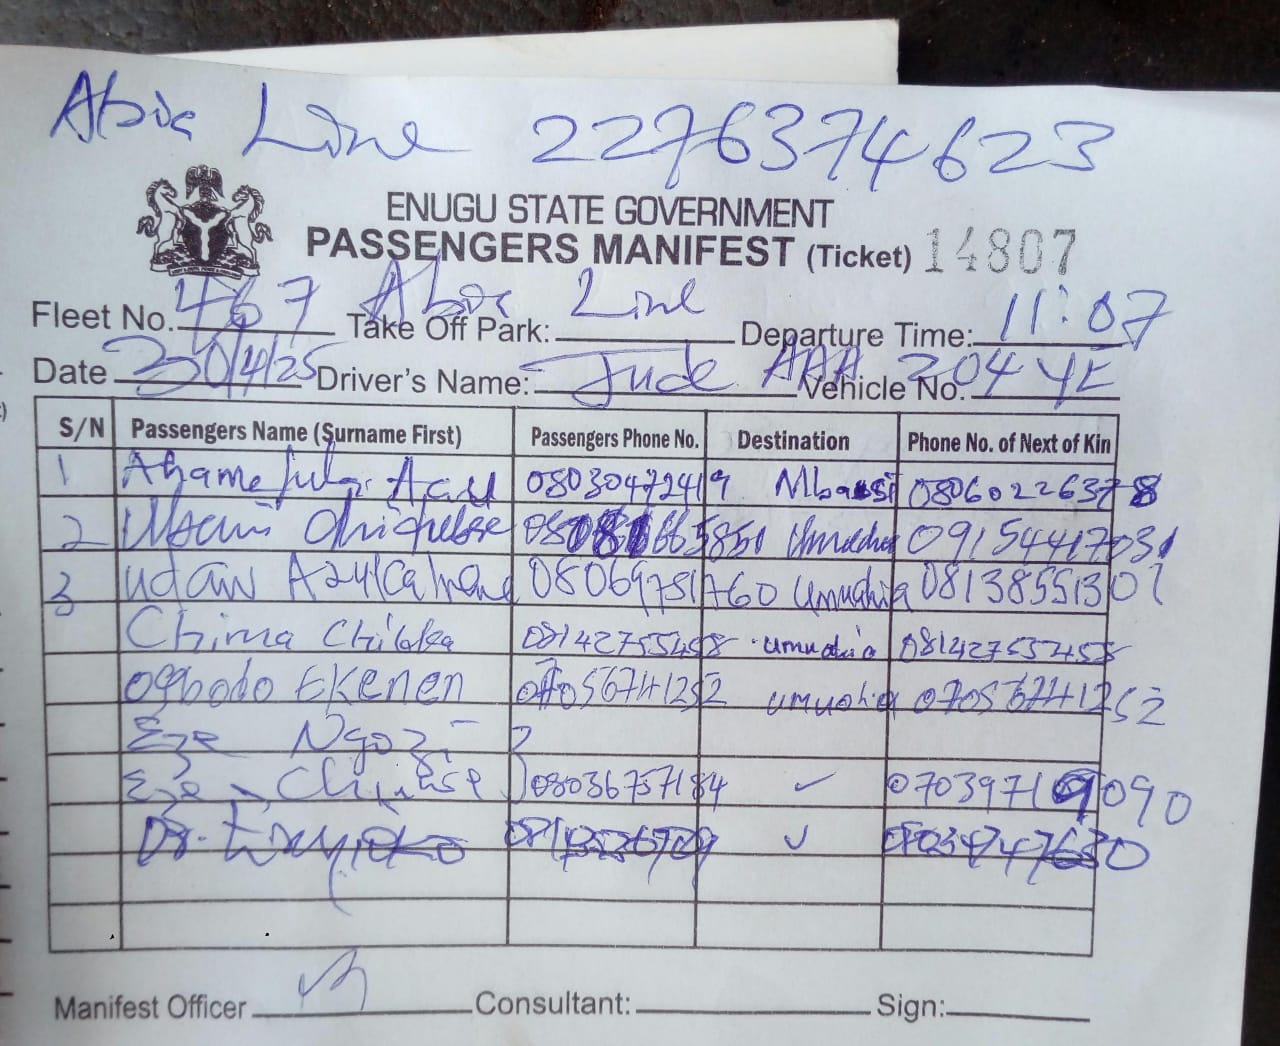 Abia Line 2276374623
ENUGU STATE GOVERNMENT
PASSENGERS MANIFEST (Ticket) 14807
Fleet No. 467 Take Off Park: Abia Line Departure Time: 11:07
Date 30/4/25 Driver's Name: Jude Vehicle No. AAA 204 YE
S/N Passengers Name (Surname First) Passengers Phone No. Destination Phone No. of Next of Kin
1 08030472419 Mbausi 08060226378
2 Umuahia 09154417031
3 08069781760 Umuahia 08138551301
Chima 08142755458 umuahia
Ogbodo Ekenen 07056741252 umuahia 07056741252
Eze Ngozi
Eze 08036757184 ✓ 07039719090
Dr. ✓
Manifest Officer Consultant: Sign: